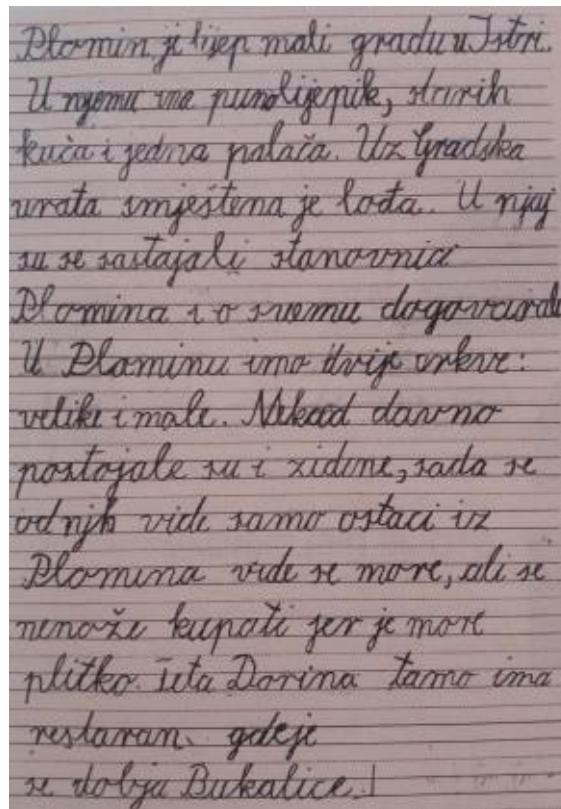 Plomin je lijep mali gradu u Istri.
U njemu ima puno lijepik, starih
kuča i jedna palača. Uz Gradska
vrata smještena je lođa. U njoj
su se sastajali stanovnici
Plomina i o svemu dogovarali
U Plominu imo dvije crkve:
velike i male. Nekad davno
postojale su i zidine, sada se
od njih vide samo ostaci iz
Plomina vide se more, ali se
nenože kupati jer je more
plitko. Teta Dorina tamo ima
restaran. gdeje
se dobja Bukalice.